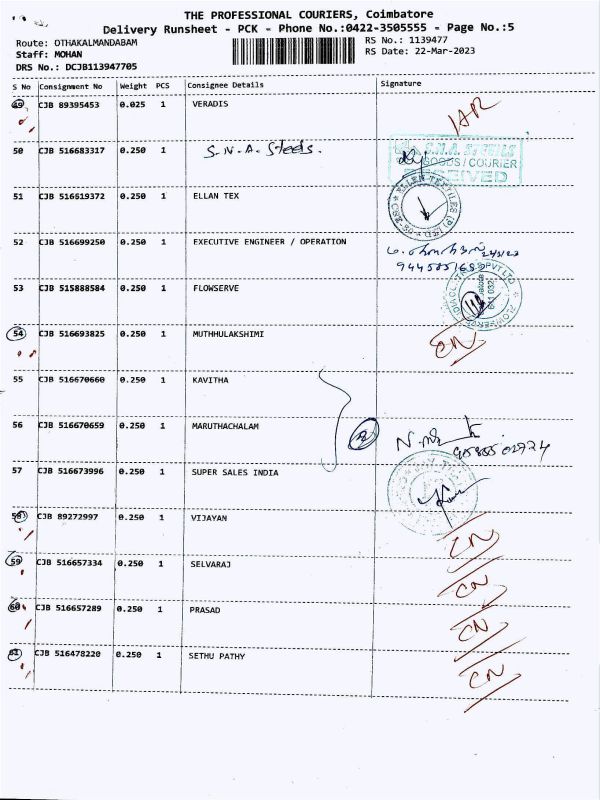 THE PROFESSIONAL COURIERS, Coimbatore
Delivery Runsheet - PCK - Phone No.:0422-3505555 - Page No.:5
Route: OTHAKALMANDABAM RS No.: 1139477
Staff: MOHAN RS Date: 22-Mar-2023
DRS No.: DCJB113947705
S No Consignment No Weight PCS Consignee Details Signature
49 CJB 89395453 0.025 1 VERADIS
50 CJB 516683317 0.250 1 S.N.A. Steels.
S.N.A. STEELS
GOODS / COURIER
RECEIVED
51 CJB 516619372 0.250 1 ELLAN TEX
52 CJB 516699250 0.250 1 EXECUTIVE ENGINEER / OPERATION
53 CJB 515888584 0.250 1 FLOWSERVE
54 CJB 516693825 0.250 1 MUTHHULAKSHIMI CN
55 CJB 516670660 0.250 1 KAVITHA
56 CJB 516670659 0.250 1 MARUTHACHALAM
57 CJB 516673996 0.250 1 SUPER SALES INDIA
58 CJB 89272997 0.250 1 VIJAYAN CN
59 CJB 516657334 0.250 1 SELVARAJ CN
60 CJB 516657289 0.250 1 PRASAD CN
61 CJB 516478220 0.250 1 SETHU PATHY CN